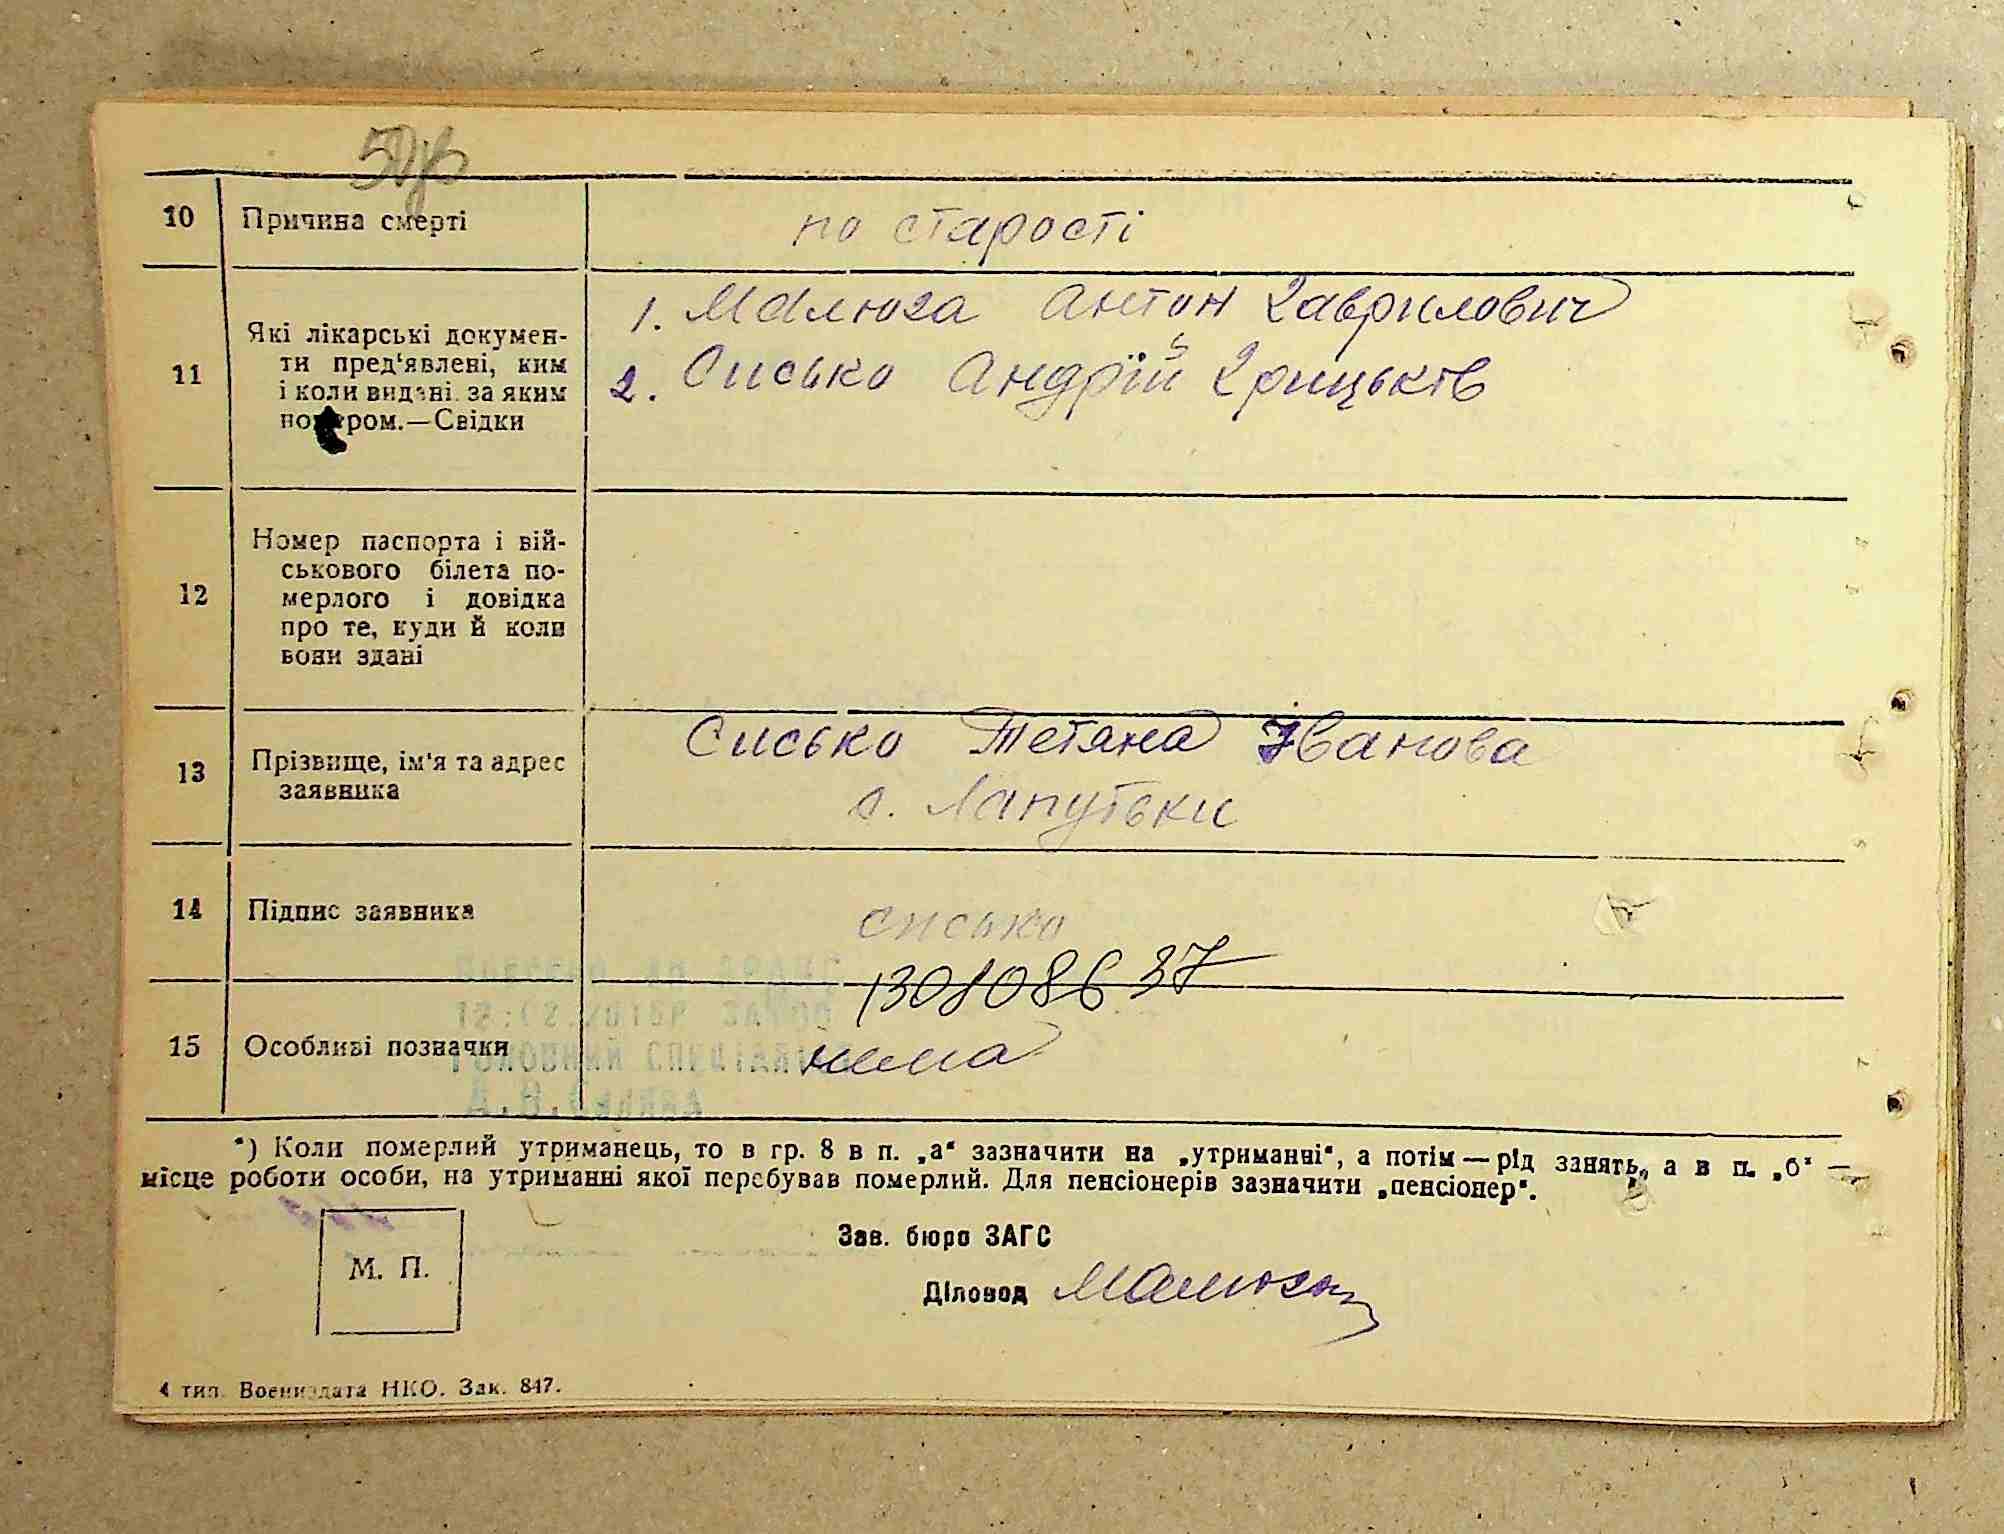 10 Причина смерті по старості
11 Які лікарські докумен-
ти пред'явлені, ким
і коли видані за яким
номером.—Свідки
1. Малюга Антон Гаврилович
2. Сисько Андрій Грицьків
12 Номер паспорта і вій-
ськового білета по-
мерлого і довідка
про те, куди й коли
вони здані
13 Прізвище, ім'я та адрес
заявника
Сисько Тетяна Іванова
с. Лапутьки
14 Підпис заявника сисько
15 Особливі позначки нема
*) Коли померлий утриманець, то в гр. 8 в п. „а" зазначити на „утриманні", а потім—рід занять, а в п. „б" —
місце роботи особи, на утриманні якої перебував померлий. Для пенсіонерів зазначити „пенсіонер".
М. П.
Зав. бюро ЗАГС
Діловод
4 тип. Воениздата НКО. Зак. 847.